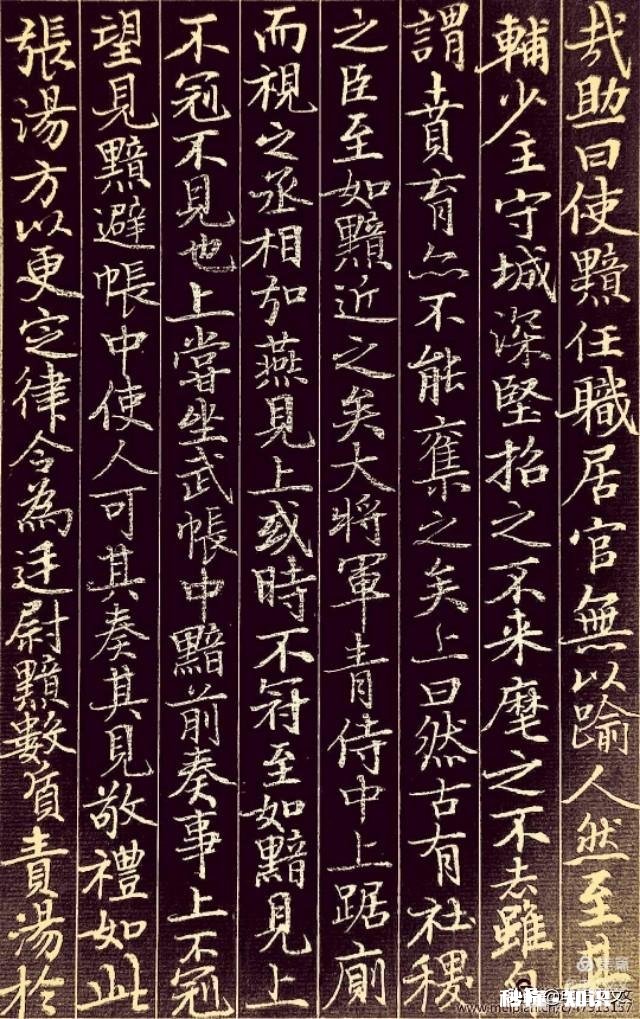 哉助曰使黯任職居官無以踰人然至其
輔少主守城深堅招之不来麾之不去雖自
謂賁育亦不能奪之矣上曰然古有社稷
之臣至如黯近之矣大將軍青侍中上踞廁
而視之丞相弘燕見上或時不冠至如黯見上
不冠不見也上嘗坐武帳中黯前奏事上不冠
望見黯避帳中使人可其奏其見敬禮如此
張湯方以更定律令為廷尉黯數質責湯於